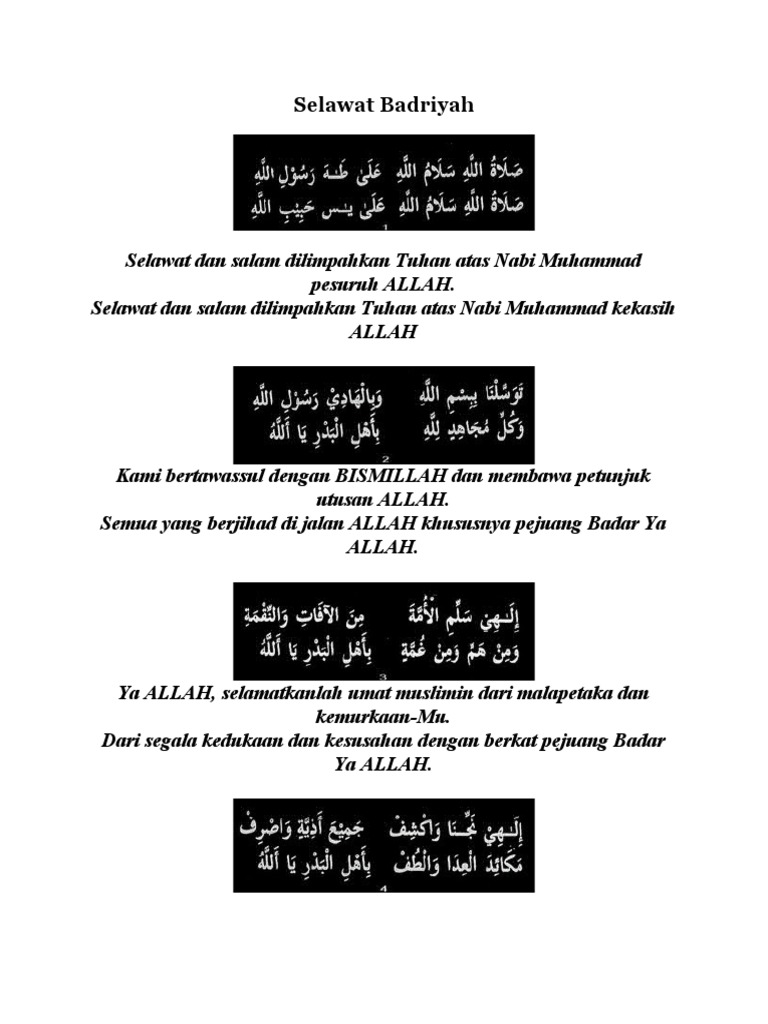 Selawat Badriyah
صَلَاةُ اللَّهِ سَلَامُ اللَّهِ عَلَىٰ طَـٰهَ رَسُوْلِ اللَّهِ
صَلَاةُ اللَّهِ سَلَامُ اللَّهِ عَلَىٰ يـٰس حَبِيْبِ اللَّهِ
1
Selawat dan salam dilimpahkan Tuhan atas Nabi Muhammad
pesuruh ALLAH.
Selawat dan salam dilimpahkan Tuhan atas Nabi Muhammad kekasih
ALLAH
تَوَسَّلْنَا بِبِسْمِ اللَّهِ وَبِالْهَادِيْ رَسُوْلِ اللَّهِ
وَكُلِّ مُجَاهِدٍ لِلَّهِ بِأَهْلِ الْبَدْرِ يَا أَللَّهُ
2
Kami bertawassul dengan BISMILLAH dan membawa petunjuk
utusan ALLAH.
Semua yang berjihad di jalan ALLAH khususnya pejuang Badar Ya
ALLAH.
إِلَـٰهِيْ سَلِّمِ الْأُمَّةَ مِنَ الْآفَاتِ وَالنِّقْمَةِ
وَمِنْ هَمٍّ وَمِنْ غُمَّةٍ بِأَهْلِ الْبَدْرِ يَا أَللَّهُ
3
Ya ALLAH, selamatkanlah umat muslimin dari malapetaka dan
kemurkaan-Mu.
Dari segala kedukaan dan kesusahan dengan berkat pejuang Badar
Ya ALLAH.
إِلَـٰهِيْ نَجِّـنَا وَاكْشِفْ جَمِيْعَ أَذِيَّةٍ وَاصْرِفْ
مَكَائِدَ الْعِدَا وَالْطُفْ بِأَهْلِ الْبَدْرِ يَا أَللَّهُ
4